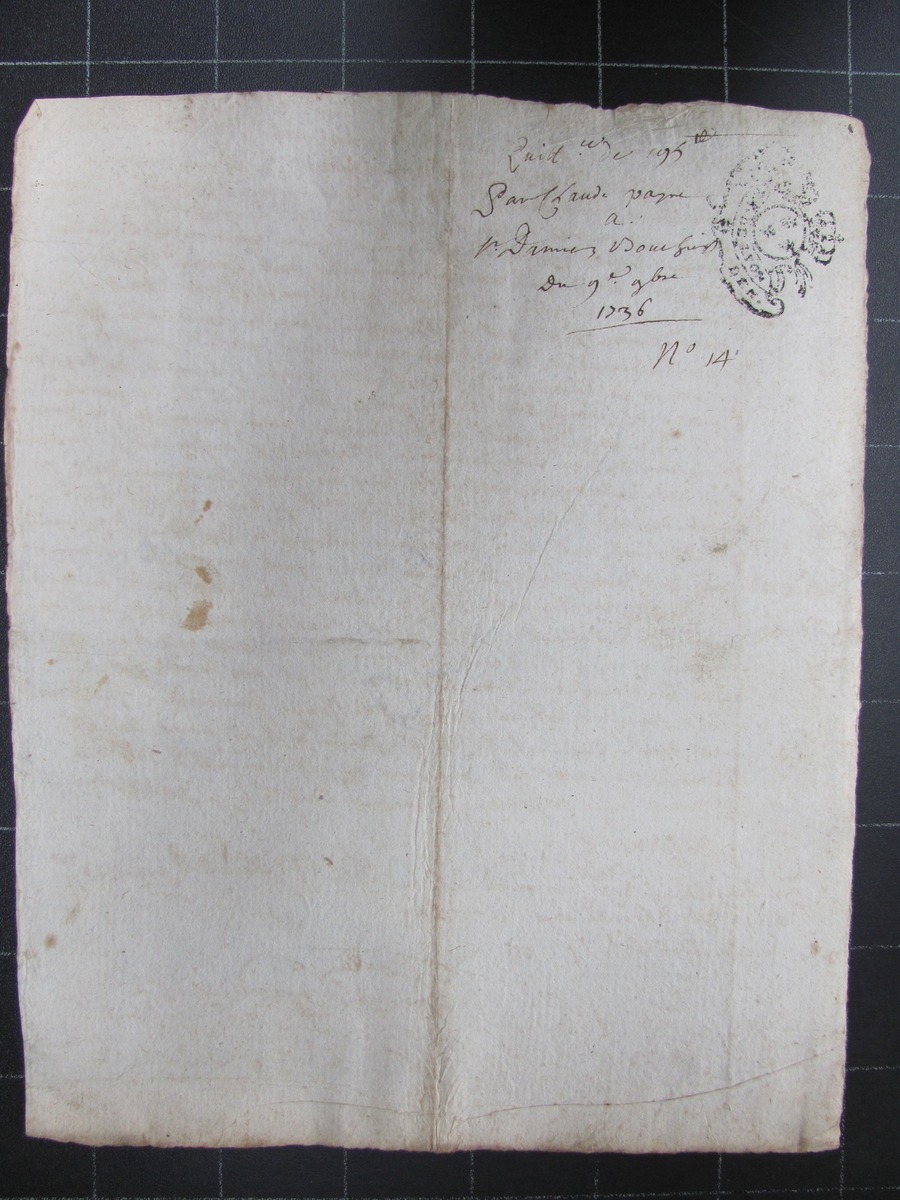 Quitt.ce de 195 tt
Par Claude payre
a
Sr. Damien Bouchet
du 9e. 9bre
1736
No 14